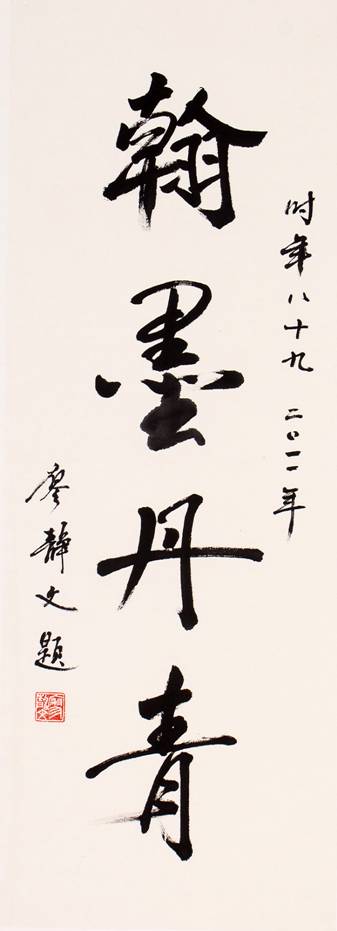 时年八十九 二〇一一年
翰墨丹青
廖静文题